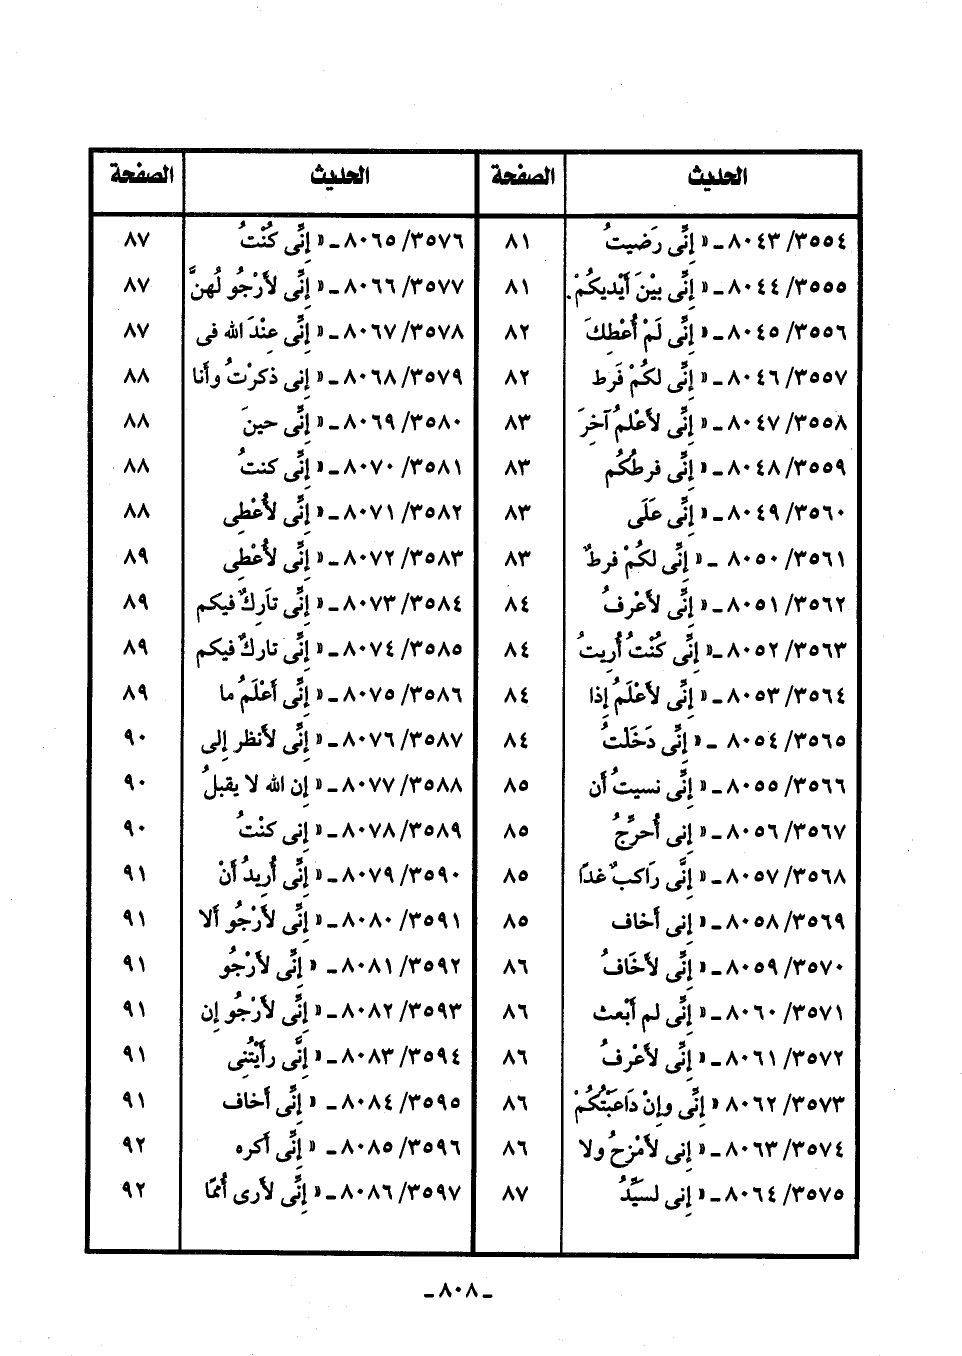 الحديث الصفحة الحديث الصفحة
٣٥٥٤/ ٨٠٤٣ ـ « إِنِّى رَضيتُ ٨١ ٣٥٧٦/ ٨٠٦٥ ـ « إِنِّى كُنْتُ ٨٧
٣٥٥٥/ ٨٠٤٤ ـ « إِنِّى بيْنَ أَيْديكُمْ. ٨١ ٣٥٧٧/ ٨٠٦٦ ـ « إِنِّى لأَرْجُو لُهنَّ ٨٧
٣٥٥٦/ ٨٠٤٥ ـ « إِنِّى لَمْ أُعْطِكَ ٨٢ ٣٥٧٨/ ٨٠٦٧ ـ « إِنِّى عِنْدَ الله فى ٨٧
٣٥٥٧/ ٨٠٤٦ ـ « إِنِّى لكُمْ فَرط ٨٢ ٣٥٧٩/ ٨٠٦٨ ـ « إِنى ذكرْتُ وأَنا ٨٨
٣٥٥٨/ ٨٠٤٧ ـ « إِنِّى لأَعْلمُ آخِرَ ٨٣ ٣٥٨٠/ ٨٠٦٩ ـ « إِنِّى حينَ ٨٨
٣٥٥٩/ ٨٠٤٨ ـ « إِنِّى فرطُكُم ٨٣ ٣٥٨١/ ٨٠٧٠ ـ « إِنِّى كنتُ ٨٨
٣٥٦٠/ ٨٠٤٩ ـ « إِنِّى عَلَى ٨٣ ٣٥٨٢/ ٨٠٧١ ـ « إِنِّى لأُعْطِى ٨٨
٣٥٦١/ ٨٠٥٠ ـ « إِنِّى لكُمْ فرطٌ ٨٣ ٣٥٨٣/ ٨٠٧٢ ـ « إِنِّى لأُعْطِى ٨٩
٣٥٦٢/ ٨٠٥١ ـ « إِنِّى لأَعْرِفُ ٨٤ ٣٥٨٤/ ٨٠٧٣ ـ « إِنِّى تاَرِكٌ فيكم ٨٩
٣٥٦٣/ ٨٠٥٢ ـ « إِنِّى كُنْتُ أُرِيتُ ٨٤ ٣٥٨٥/ ٨٠٧٤ ـ « إِنِّى تاركٌ فيكم ٨٩
٣٥٦٤/ ٨٠٥٣ ـ « إِنِّى لأَعْلَمُ إِذا ٨٤ ٣٥٨٦/ ٨٠٧٥ ـ « إِنِّى أَعْلَمُ ما ٨٩
٣٥٦٥/ ٨٠٥٤ ـ « إِنِّى دَخَلْتُ ٨٤ ٣٥٨٧/ ٨٠٧٦ ـ « إِنِّى لأَنظر إِلى ٩٠
٣٥٦٦/ ٨٠٥٥ ـ « إِنِّى نسيتُ أَن ٨٥ ٣٥٨٨/ ٨٠٧٧ ـ « إِن الله لا يقبلُ ٩٠
٣٥٦٧/ ٨٠٥٦ ـ « إِنى أُحرِّجُ ٨٥ ٣٥٨٩/ ٨٠٧٨ ـ « إِنى كنْتُ ٩٠
٣٥٦٨/ ٨٠٥٧ ـ « إِنَّى رَاكبٌ غدًا ٨٥ ٣٥٩٠/ ٨٠٧٩ ـ « إِنِّى أُرِيدُ أَنْ ٩١
٣٥٦٩/ ٨٠٥٨ ـ « إِنى أَخاف ٨٥ ٣٥٩١/ ٨٠٨٠ ـ « إِنِّى لأَرْجُو أَلا ٩١
٣٥٧٠/ ٨٠٥٩ ـ « إِنِّى لأَخَافُ ٨٦ ٣٥٩٢/ ٨٠٨١ ـ « إِنِّى لأَرْجُو ٩١
٣٥٧١/ ٨٠٦٠ ـ « إِنِّى لم أَبْعث ٨٦ ٣٥٩٣/ ٨٠٨٢ ـ « إِنِّى لأَرْجُو إِن ٩١
٣٥٧٢/ ٨٠٦١ ـ « إِنِّى لأَعْرِفُ ٨٦ ٣٥٩٤/ ٨٠٨٣ ـ « إِنَّى رأَيْتُنِى ٩١
٣٥٧٣/ ٨٠٦٢ « إِنِّى وإِنْ دَاعَبْتُكُمْ ٨٦ ٣٥٩٥/ ٨٠٨٤ ـ « إِنِّى أَخاف ٩١
٣٥٧٤/ ٨٠٦٣ ـ « إِنى لأَمْزحُ ولا ٨٦ ٣٥٩٦/ ٨٠٨٥ ـ « إِنِّى أَكره ٩٢
٣٥٧٥/ ٨٠٦٤ ـ « إِنى لسيِّدُ ٨٧ ٣٥٩٧/ ٨٠٨٦ ـ « إِنِّى لأَرى أُممًا ٩٢
ـ ٨٠٨ ـ